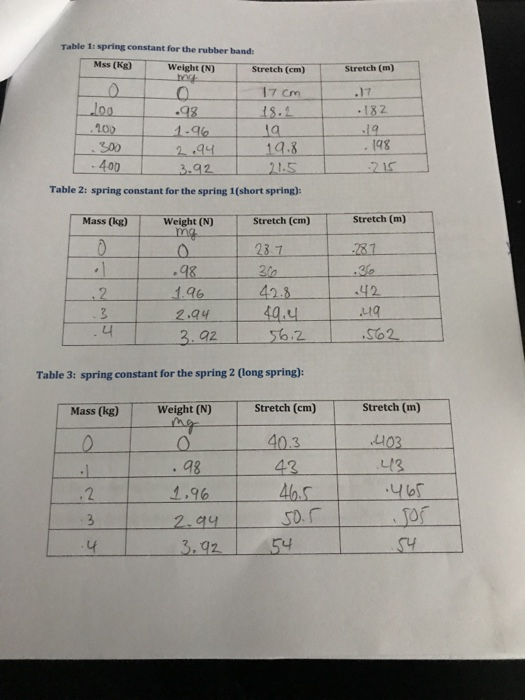 Table 1: spring constant for the rubber band:
Mss (Kg) Weight (N) Stretch (cm) Stretch (m)
mg
0 0 17 cm .17
.100 .98 18.2 .182
.200 1.96 19 .19
.300 2.94 19.8 .198
.400 3.92 21.5 .215
Table 2: spring constant for the spring 1(short spring):
Mass (kg) Weight (N) Stretch (cm) Stretch (m)
mg
0 0 28.7 .287
.1 .98 36 .36
.2 1.96 42.8 .42
.3 2.94 49.4 .49
.4 3.92 56.2 .562
Table 3: spring constant for the spring 2 (long spring):
Mass (kg) Weight (N) Stretch (cm) Stretch (m)
mg
0 0 40.3 .403
.1 .98 43 .43
.2 1.96 46.5 .465
.3 2.94 50.5 .505
.4 3.92 54 .54